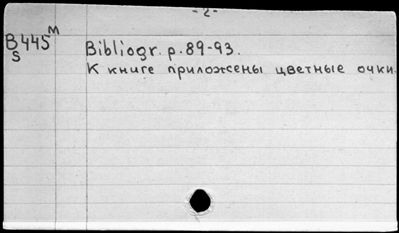 -2-
B445 M
S
Bibliogr. p. 89-93.
К книге приложены цветные очки.